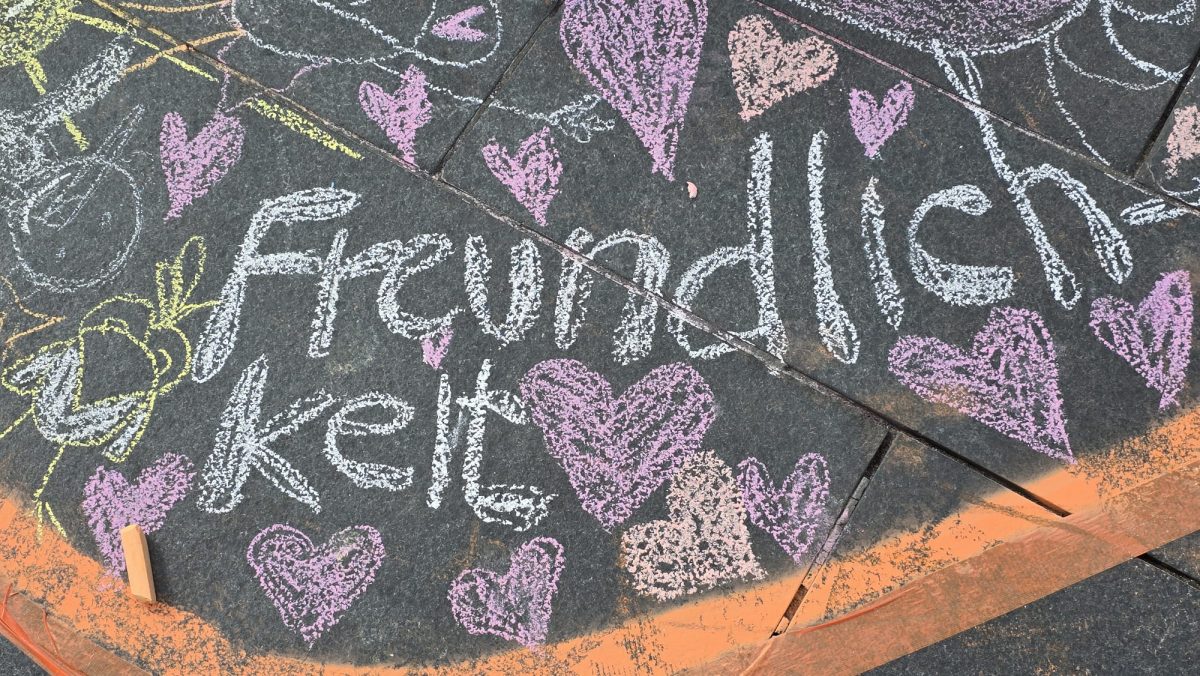 Freundlich
keit